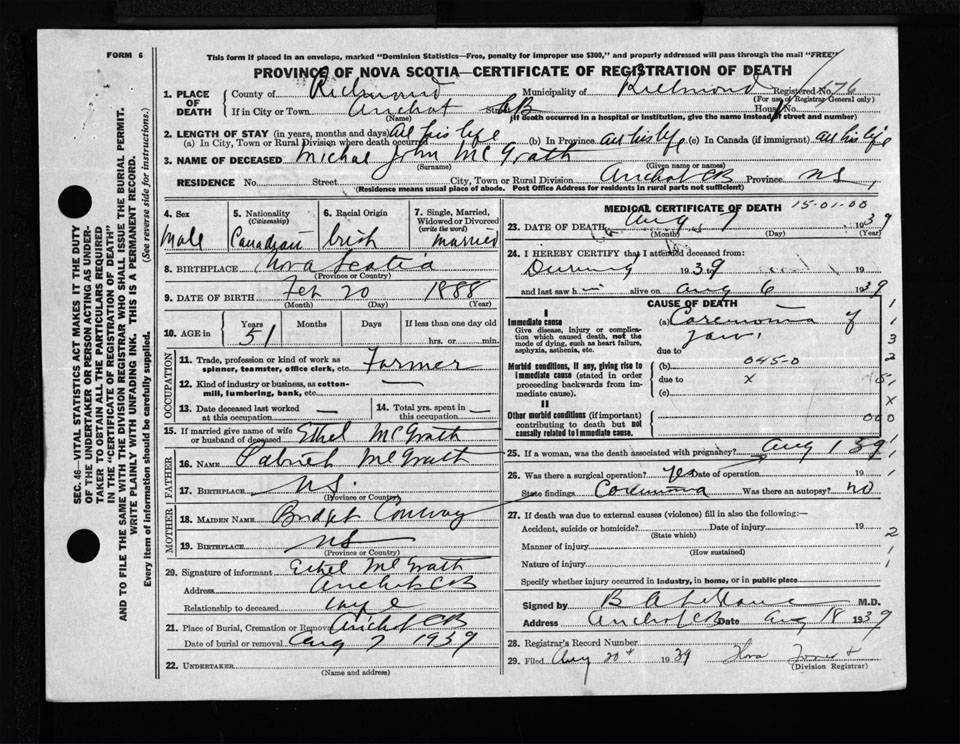 FORM 6
This form if placed in an envelope, marked "Dominion Statistics—Free, penalty for improper use $300," and properly addressed will pass through the mail "FREE"
PROVINCE OF NOVA SCOTIA—CERTIFICATE OF REGISTRATION OF DEATH
1. PLACE OF DEATH County of Richmond Municipality of Richmond Registered No. 176
(For use of Registrar General only)
If in City or Town Arichat Street CB House No.
(Name) (If death occurred in a hospital or institution, give the name instead of street and number)
2. LENGTH OF STAY (in years, months and days)
(a) In City, Town or Rural Division where death occurred All his life (b) In Province all his life (c) In Canada (if immigrant) all his life
3. NAME OF DECEASED Michael John McGrath
(Surname) (Given name or names)
RESIDENCE No. Street City, Town or Rural Division Arichat CB Province NS
(Residence means usual place of abode. Post Office Address for residents in rural parts not sufficient)
4. Sex Male
5. Nationality (Citizenship) Canadian
6. Racial Origin Irish
7. Single, Married, Widowed or Divorced (write the word) Married
8. BIRTHPLACE Nova Scotia
(Province or Country)
9. DATE OF BIRTH Feb 20 1888
(Month) (Day) (Year)
10. AGE in Years 51 Months Days If less than one day old
hrs. or min.
OCCUPATION
11. Trade, profession or kind of work as spinner, teamster, office clerk, etc. Farmer
12. Kind of industry or business, as cotton-mill, lumbering, bank, etc. —
13. Date deceased last worked at this occupation —
14. Total yrs. spent in this occupation —
15. If married give name of wife or husband of deceased Ethel McGrath
FATHER
16. NAME Patrick McGrath
17. BIRTHPLACE NS.
(Province or Country)
MOTHER
18. MAIDEN NAME Bridget Conway
19. BIRTHPLACE NS
(Province or Country)
20. Signature of informant Ethel McGrath
Address Arichat CB
Relationship to deceased wife
21. Place of Burial, Cremation or Removal Arichat CB
Date of burial or removal Aug 7 1939
22. UNDERTAKER
(Name and address)
MEDICAL CERTIFICATE OF DEATH 15-01-00
23. DATE OF DEATH Aug 7 1939
(Month) (Day) (Year)
24. I HEREBY CERTIFY that I attended deceased from:
During 1939 19
and last saw h alive on Aug 6 1939
CAUSE OF DEATH
I
Immediate cause
Give disease, injury or complication which caused death, not the mode of dying, such as heart failure, asphyxia, asthenia, etc.
(a) Carcinoma of jaw
due to
Morbid conditions, if any, giving rise to immediate cause (stated in order proceeding backwards from immediate cause).
(b) 045-0
due to x
(c)
II
Other morbid conditions (if important) contributing to death but not causally related to immediate cause.
000
25. If a woman, was the death associated with pregnancy? Aug 1 39
26. Was there a surgical operation? Yes Date of operation 19
State findings Carcinoma Was there an autopsy? no
27. If death was due to external causes (violence) fill in also the following:—
Accident, suicide or homicide? Date of injury 19
(State which)
Manner of injury
(How sustained)
Nature of injury
Specify whether injury occurred in industry, in home, or in public place
Signed by M.D.
Address Arichat CB Date Aug 18 1939
28. Registrar's Record Number
29. Filed Aug 20 1939
(Division Registrar)
SEC. 46—VITAL STATISTICS ACT MAKES IT THE DUTY
OF THE UNDERTAKER OR PERSON ACTING AS UNDERTAKER TO OBTAIN ALL THE PARTICULARS REQUIRED
IN THE "CERTIFICATE OF REGISTRATION OF DEATH"
AND TO FILE THE SAME WITH THE DIVISION REGISTRAR WHO SHALL ISSUE THE BURIAL PERMIT.
WRITE PLAINLY WITH UNFADING INK. THIS IS A PERMANENT RECORD.
Every item of information should be carefully supplied. (See reverse side for instructions.)